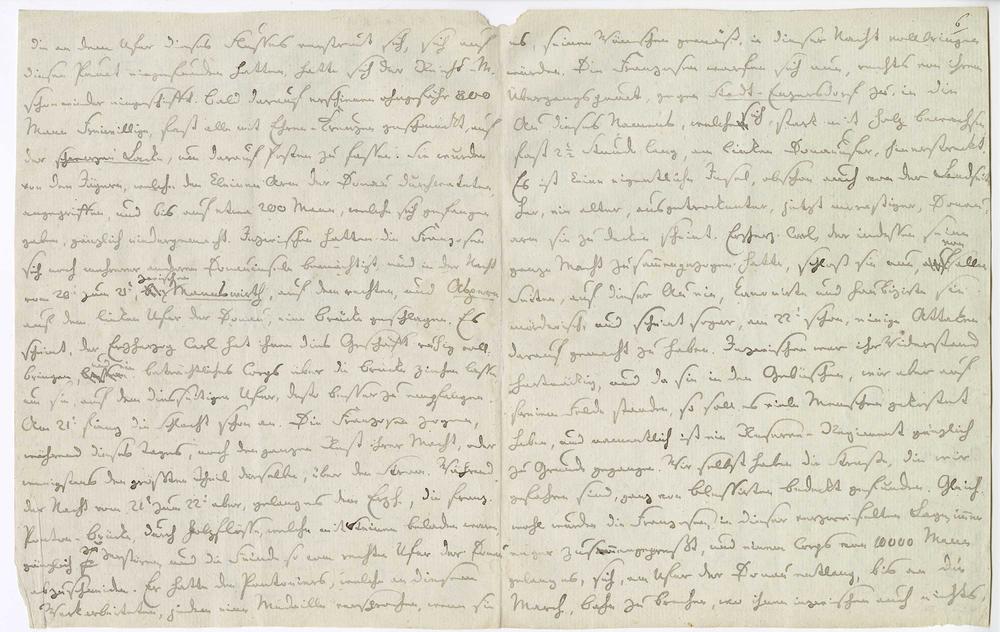 die an dem Ufer dieses Flusses verstreut sich, sich auf
diesen Punct eingefunden hatten, hatte sich der Reichs-M.
schon wieder eingeschifft. Bald darauf erschienen ohngefähr 800
Mann Freiwillige, fast alle mit Ehren-Kreuzen geschmückt, auf
der schwarzen Lache, um darauf Posten zu fassen. Sie wurden
von den Jägern, welche den kleinen Arm der Donau durchwateten,
angegriffen, und bis auf etwa 200 Mann, welche sich gefangen
gaben, gänzlich niedergemacht. Inzwischen hatten die Franzosen
sich noch mehrerer anderen Donauinseln bemächtigt und in der Nacht
vom 20t zum 21t, zwischen Mannswörth, auf dem rechten, und Aspern
auf dem linken Ufer der Donau, eine Brücke geschlagen. Es
scheint, der Erzherzog Carl hat ihnen dies Geschäft ruhig voll-
bringen, ein beträchtliches Corps über die Brücke ziehen lassen
um sie, auf dem diesseitigen Ufer, desto besser zu empfangen.
Am 21t fieng die Schlacht schon an. Die Franzosen zogen,
während dieses Tages, noch den ganzen Rest ihrer Macht, oder
wenigstens den größten Theil derselben, über den Strom. Während
der Nacht vom 21t zum 22t aber, gelang es dem Erzh., die franz.
Ponton-Brücke, durch Holzflöße, welche mit Steinen beladen waren
gänzlich zu zerstören und die Feinde so vom rechten Ufer der Donau
abzuschneiden. Er hatte den Pontoniers, welche an diesem
Werk arbeiteten, jedem eine Medaille versprochen, wenn sie
6
es, seinen Wünschen gemäß, in dieser Nacht vollbringen
würden. Die Franzosen warfen sich nun, rechts von ihrem
Übergangspunct, gegen Stadt-Enzersdorf zu, in die
Au dieses Namens, welche sich, stark mit Holz bewachsen,
fast 2 1/2 Stunde lang, am linken Donauufer, hinerstreckt.
Es ist keine eigentliche Insel, obschon auch von der Landseite
her, ein alter, ausgetrockneter, jetzt morastiger, Donau-
arm sie zu decken scheint. Erzherz. Carl, der indessen seine
ganze Macht zusammengezogen hatte, schloß sie nun, von allen
Seiten, auf dieser Au ein, kanonirte und haubizirte sie
mörderisch und scheint sogar, am 22t schon, einige Attaken
darauf gemacht zu haben. Inzwischen war ihr Widerstand
hartnäckig, und da sie in den Gebüschen, wir aber auf
freiem Felde standen, so soll es viele Menschen gekostet
haben, und namentlich ist ein Husaren-Regiment gänzlich
zu Grunde gegangen. Wir selbst haben die Straße, die wir
gefahren sind, ganz von Blessirten bedeckt gefunden. Gleich-
wohl wurden die Franzosen, in dieser verzweifelten Lage, immer
enger zusammengepreßt, und einem Corps von 10000 Mann
gelang es, sich, am Ufer der Donau entlang, bis an die
March, Bahn zu brechen, wo ihnen inzwischen auch nichts,